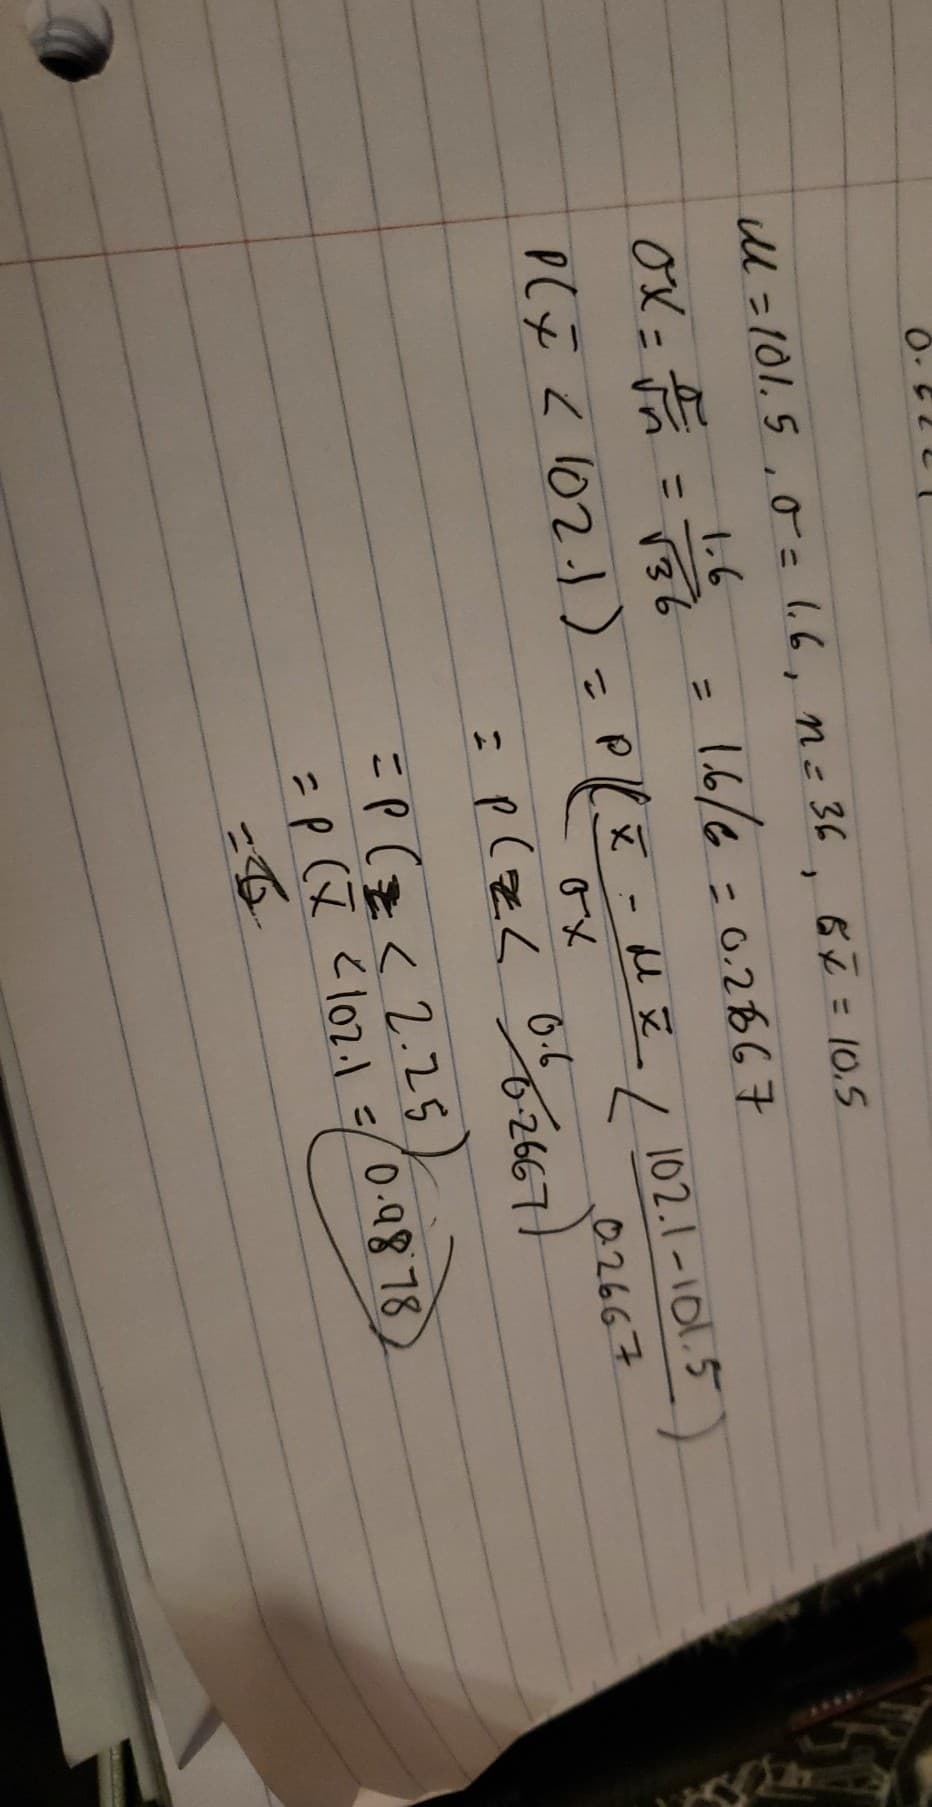 μ = 101.5, σ = 1.6, n = 36, σx̄ = 10.5
σx = σ/√n = 1.6/√36 = 1.6/6 = 0.2667
P(x̄ < 102.1) = P((x̄ - μx̄)/σx < (102.1 - 101.5)/0.2667)
= P(z < 0.6/0.2667)
= P(z < 2.25)
= P(x̄ < 102.1 = 0.9878
=